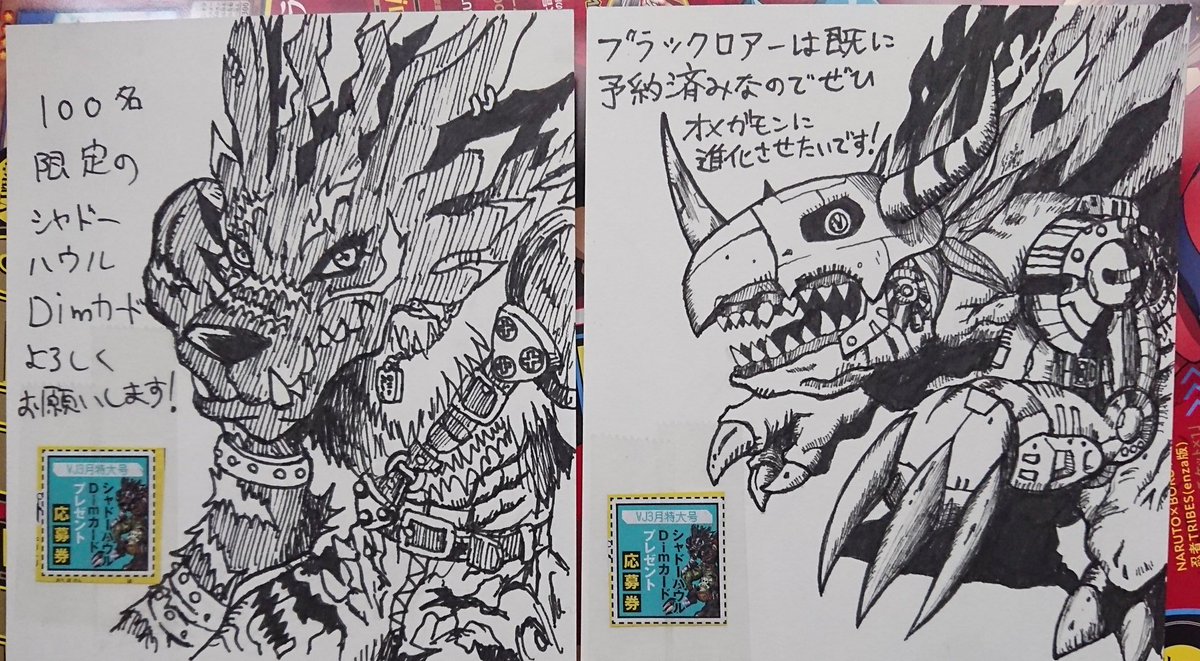 100名
限定の
シャドー
ハウル
Dimカード
よろしく
お願いします!
VJ3月特大号
シャドーハウル
Dimカード
プレゼント
応募券
ブラックロアーは既に
予約済みなのでぜひ
オメガモンに
進化させたいです!
VJ3月特大号
シャドーハウル
Dimカード
プレゼント
応募券
NARUTO×BORU
忍者TRIBES(enza版)